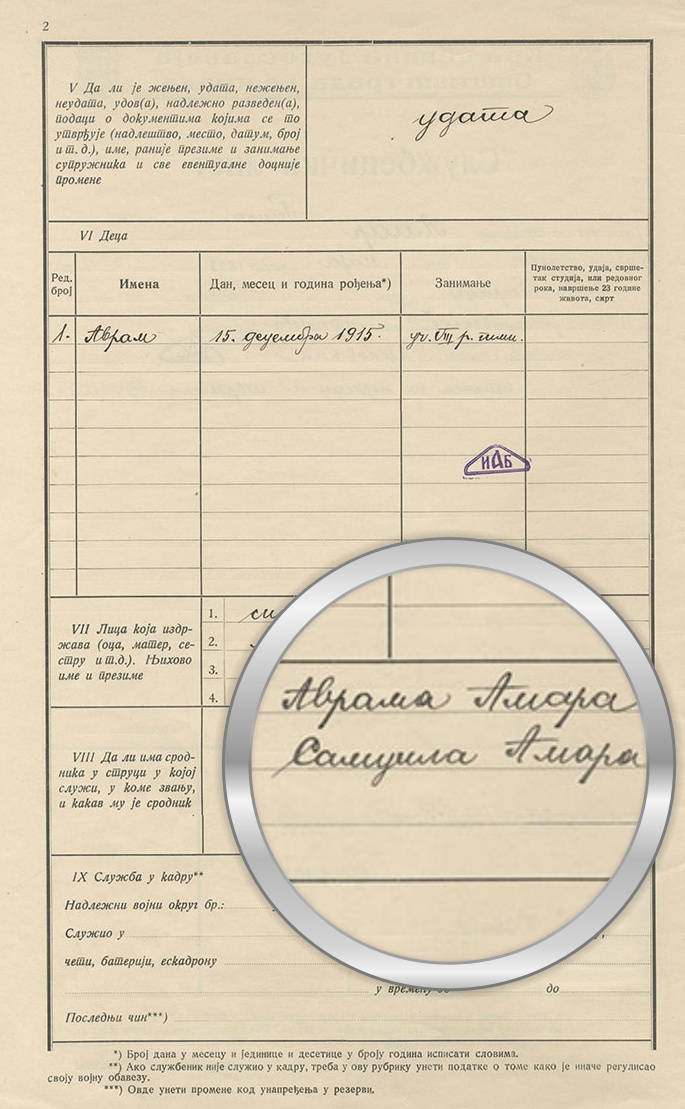 2
V Да ли је жењен, удата, нежењен,
неудата, удов(а), надлежно разведен(а),
подаци о документима којима се то
утврђује (надлештво, место, датум, број
и т. д.), име, раније презиме и занимање
супружника и све евентуалне доцније
промене
удата
VI Деца
Ред. број
Имена
Дан, месец и година рођења*)
Занимање
Пунолетство, удаја, сврше-
так студија, или редовног
рока, навршење 23 године
живота, смрт
1. Аврам 15. децембра 1915. уч. VIII р. гимн.
ИАБ
VII Лица која издр-
жава (оца, матер, се-
стру и т.д.). Њихово
име и презиме
1. си
2.
3.
4.
Аврама Амара
Самуила Амара
VIII Да ли има срод-
ника у струци у којој
служи, у коме звању,
и какав му је сродник
IX Служба у кадру**
Надлежни војни округ бр.:
Служио у
чети, батерији, ескадрону
у времену до
Последњи чин***)
*) Број дана у месецу и јединице и десетице у броју година исписати словима.
**) Ако службеник није служио у кадру, треба у ову рубрику унети податке о томе како је иначе регулисао
своју војну обавезу.
***) Овде унети промене код унапређења у резерви.